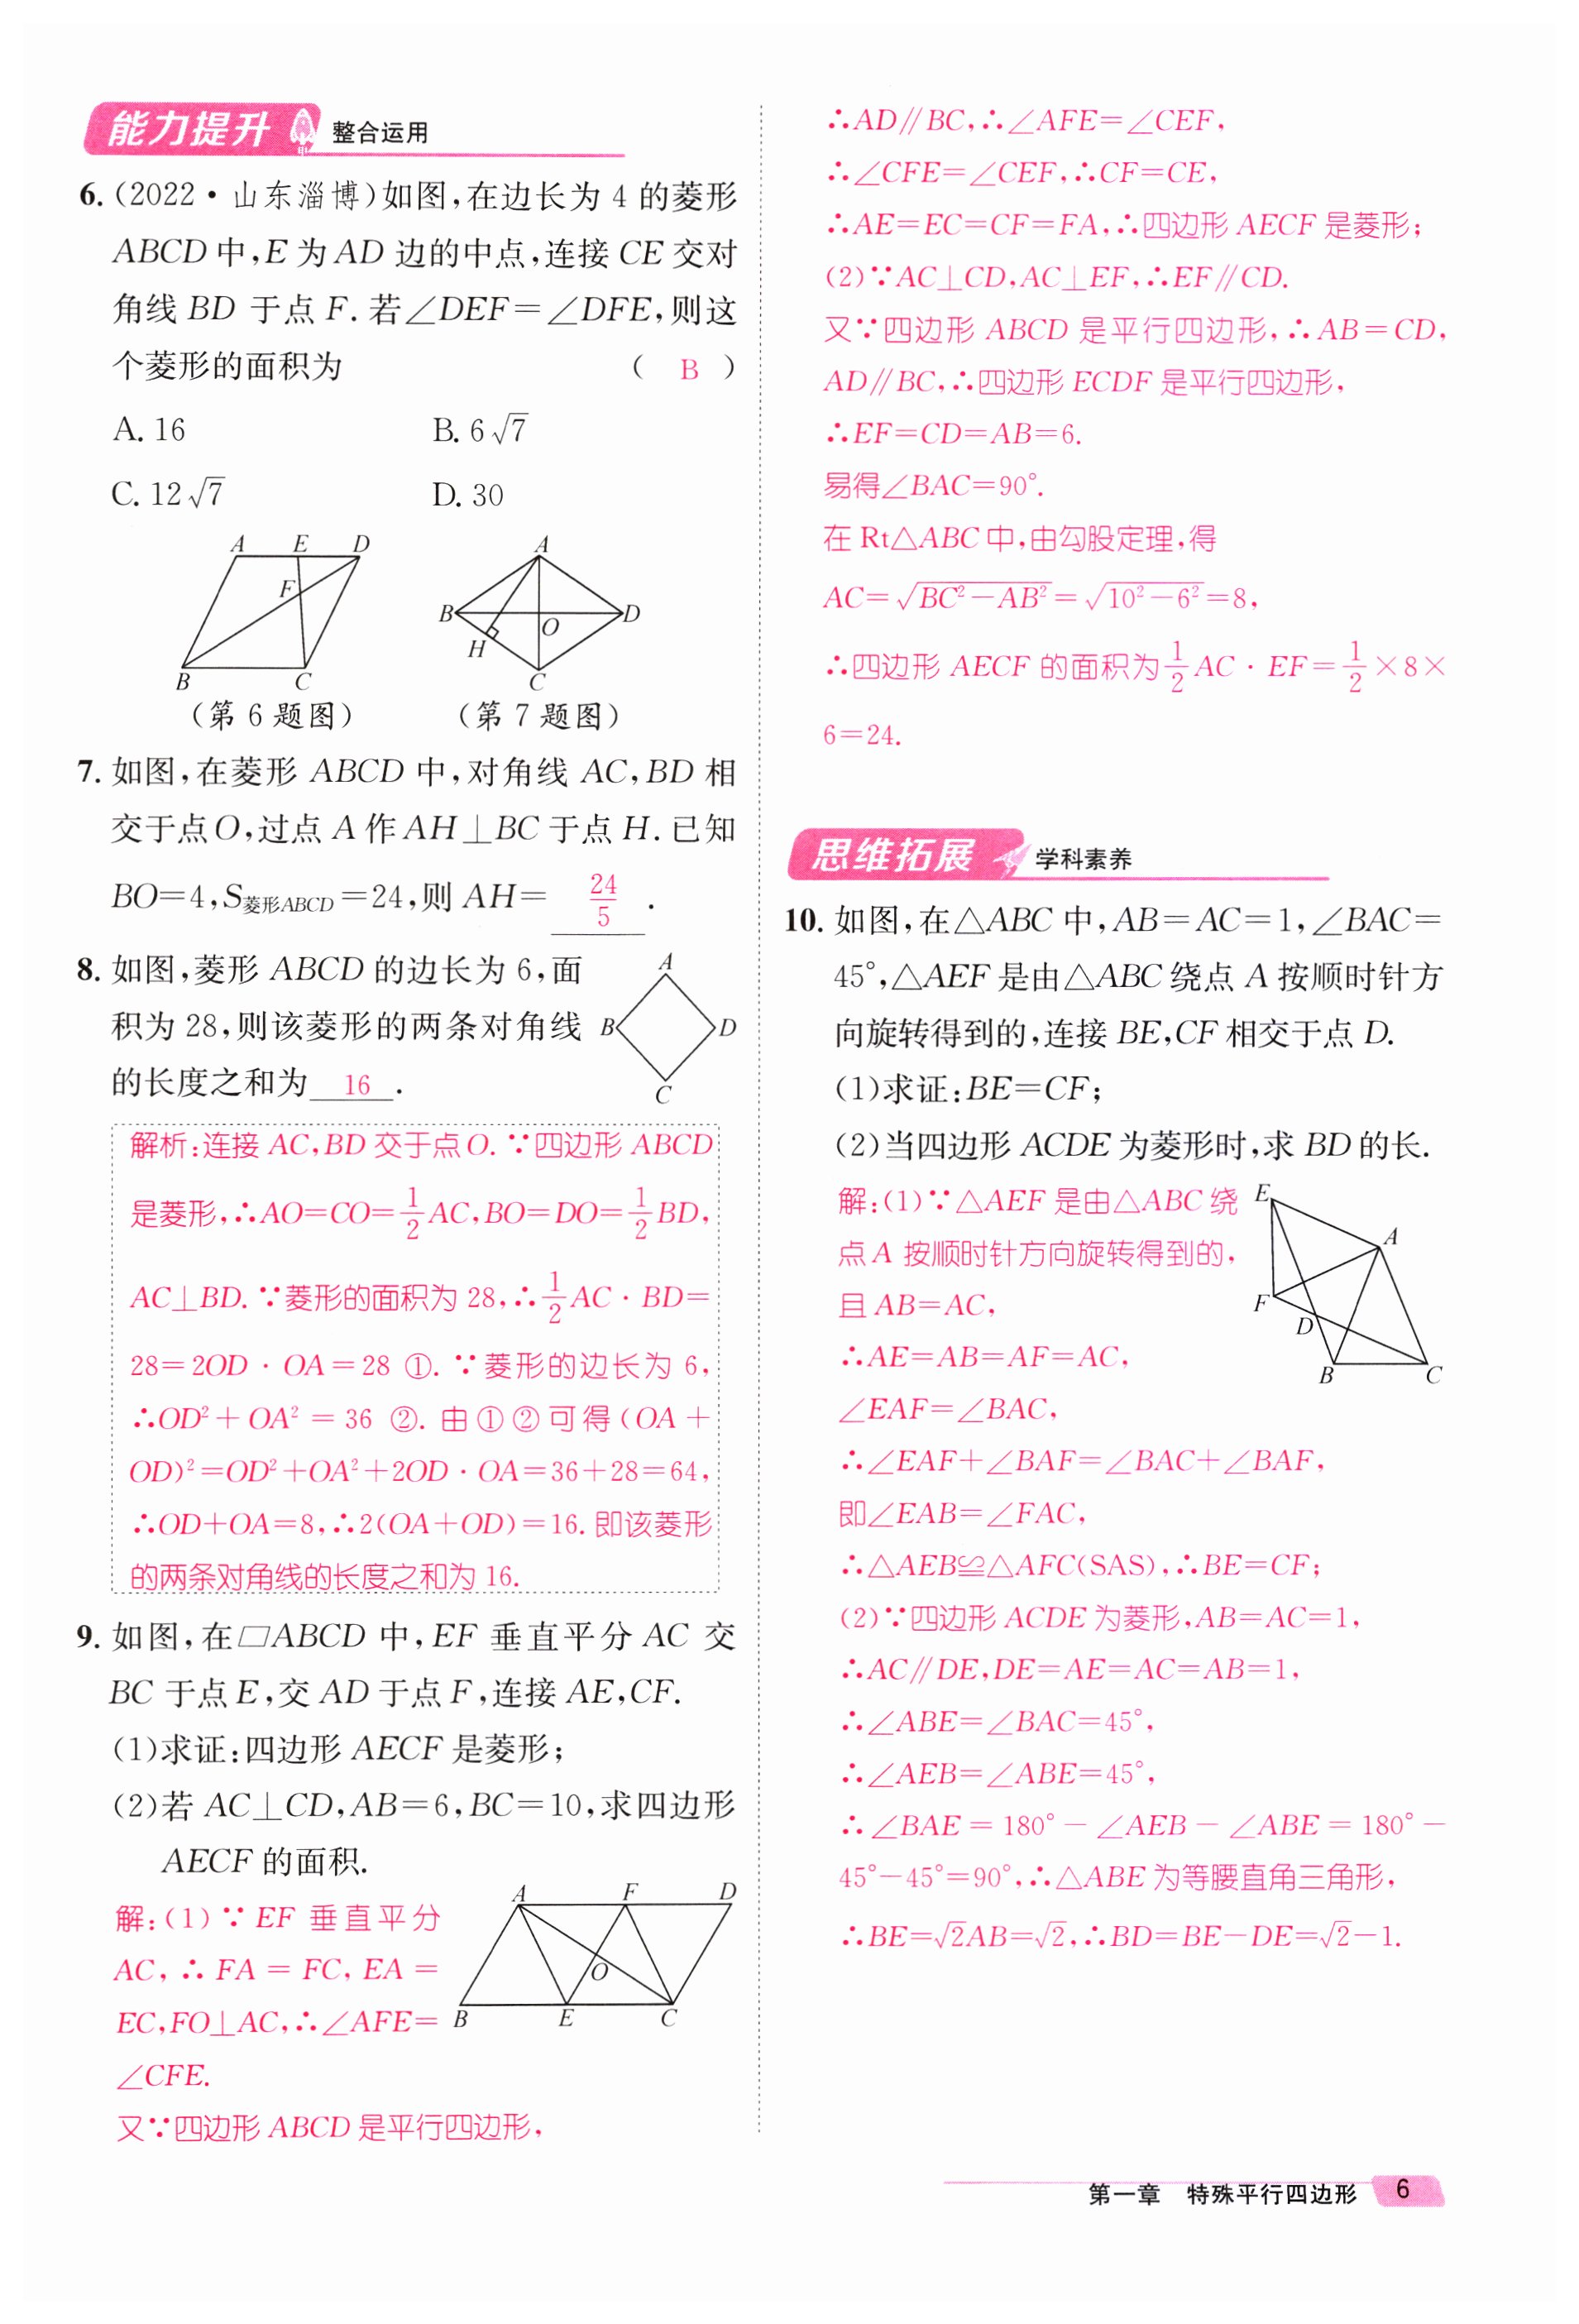 能力提升 整合运用
6.(2022·山东淄博)如图,在边长为 4 的菱形
ABCD 中,E 为 AD 边的中点,连接 CE 交对
角线 BD 于点 F. 若∠DEF=∠DFE,则这
个菱形的面积为 ( B )
A. 16 B. 6√7
C. 12√7 D. 30
A E D
F
B C
(第 6 题图)
A
B D
O
H
C
(第 7 题图)
7. 如图,在菱形 ABCD 中,对角线 AC,BD 相
交于点O,过点 A 作 AH⊥BC 于点 H. 已知
BO=4,S菱形ABCD=24,则 AH= 24/5 .
8. 如图,菱形 ABCD 的边长为 6,面
积为 28,则该菱形的两条对角线
的长度之和为 16 .
A
B D
C
解析:连接 AC,BD 交于点O. ∵四边形 ABCD
是菱形,∴AO=CO=1/2 AC,BO=DO=1/2 BD,
AC⊥BD. ∵菱形的面积为 28,∴1/2 AC·BD=
28=2OD·OA=28 ①. ∵菱形的边长为 6,
∴OD²+OA²=36 ②. 由①②可得(OA+
OD)²=OD²+OA²+2OD·OA=36+28=64,
∴OD+OA=8,∴2(OA+OD)=16. 即该菱形
的两条对角线的长度之和为 16.
9. 如图,在▱ABCD 中,EF 垂直平分 AC 交
BC 于点E,交 AD 于点 F,连接 AE,CF.
(1)求证:四边形 AECF 是菱形;
(2)若 AC⊥CD,AB=6,BC=10,求四边形
AECF 的面积.
A F D
O
B E C
解:(1)∵EF 垂直平分
AC,∴FA=FC,EA=
EC,FO⊥AC,∴∠AFE=
∠CFE.
又∵四边形 ABCD 是平行四边形,
∴AD∥BC,∴∠AFE=∠CEF,
∴∠CFE=∠CEF,∴CF=CE,
∴AE=EC=CF=FA,∴四边形 AECF 是菱形;
(2)∵AC⊥CD,AC⊥EF,∴EF∥CD.
又∵四边形 ABCD 是平行四边形,∴AB=CD,
AD∥BC,∴四边形 ECDF 是平行四边形,
∴EF=CD=AB=6.
易得∠BAC=90°.
在 Rt△ABC 中,由勾股定理,得
AC=√(BC²-AB²)=√(10²-6²)=8,
∴四边形 AECF 的面积为1/2 AC·EF=1/2×8×
6=24.
思维拓展 学科素养
10. 如图,在△ABC 中,AB=AC=1,∠BAC=
45°,△AEF 是由△ABC 绕点 A 按顺时针方
向旋转得到的,连接 BE,CF 相交于点 D.
(1)求证:BE=CF;
(2)当四边形 ACDE 为菱形时,求 BD 的长.
E
A
F
D
B C
解:(1)∵△AEF 是由△ABC 绕
点 A 按顺时针方向旋转得到的,
且 AB=AC,
∴AE=AB=AF=AC,
∠EAF=∠BAC,
∴∠EAF+∠BAF=∠BAC+∠BAF,
即∠EAB=∠FAC,
∴△AEB≌△AFC(SAS),∴BE=CF;
(2)∵四边形 ACDE 为菱形,AB=AC=1,
∴AC∥DE,DE=AE=AC=AB=1,
∴∠ABE=∠BAC=45°,
∴∠AEB=∠ABE=45°,
∴∠BAE=180°-∠AEB-∠ABE=180°-
45°-45°=90°,∴△ABE 为等腰直角三角形,
∴BE=√2AB=√2,∴BD=BE-DE=√2-1.
第一章 特殊平行四边形 6